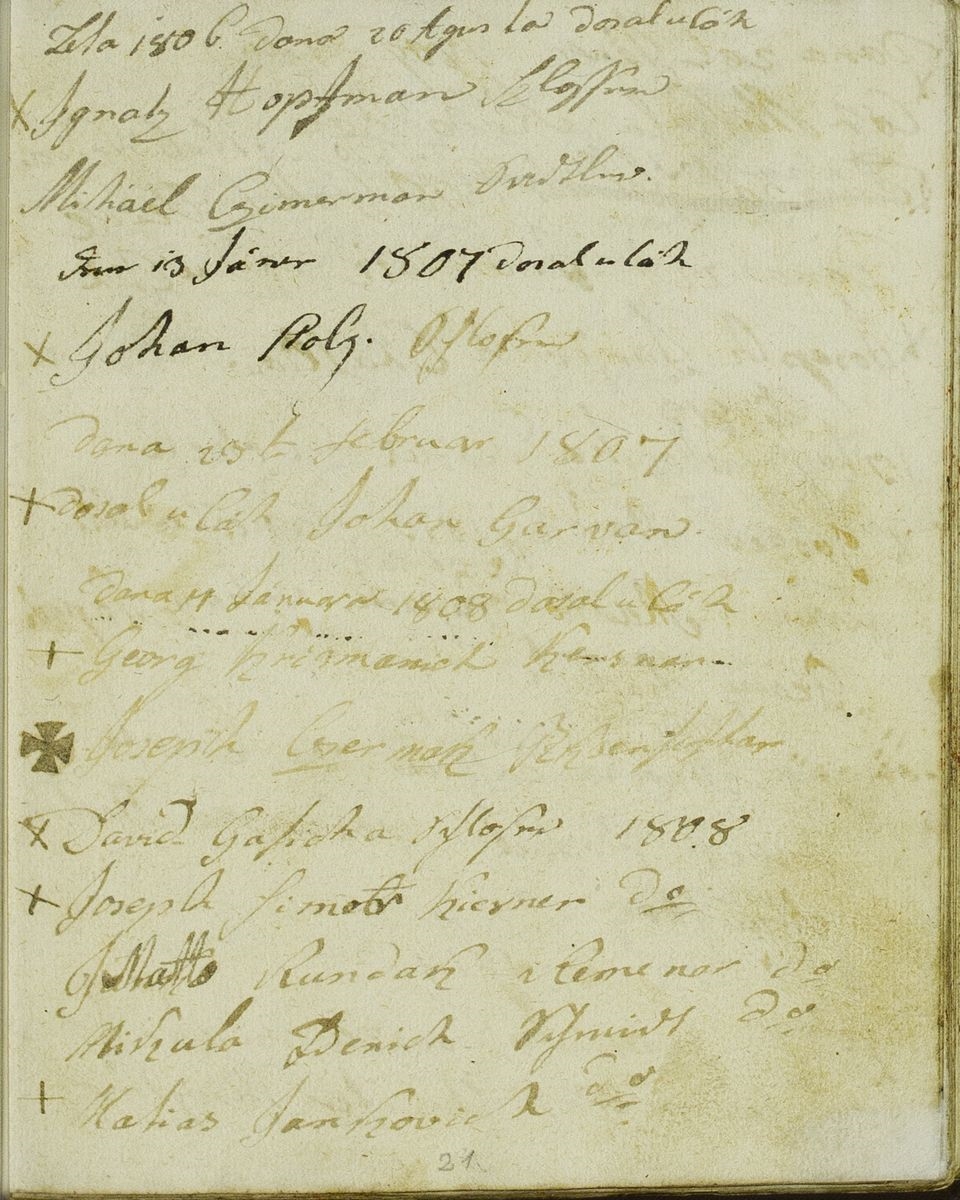 Leta 1806. dana 20 Agusta dosal u láh
+ Ignatz Hopfman Schlosser
Mihael Czimerman
13 Jáner 1807 dosal u láh
+ Johan Stolz. Schlosser
Dana 23ta Februar 1807
+ dosal u láh Johan Garvan.
Dana 11 Januara 1808 dosal u láh
+ Georg Krismanich
Joseph Czermak
+ David Gasicha Schlosser 1808
+ Joseph Simon Kirner do
Matto Kundak Remenar do
Mikula Benich Schmidt do
+ Matias Jankovich do
21